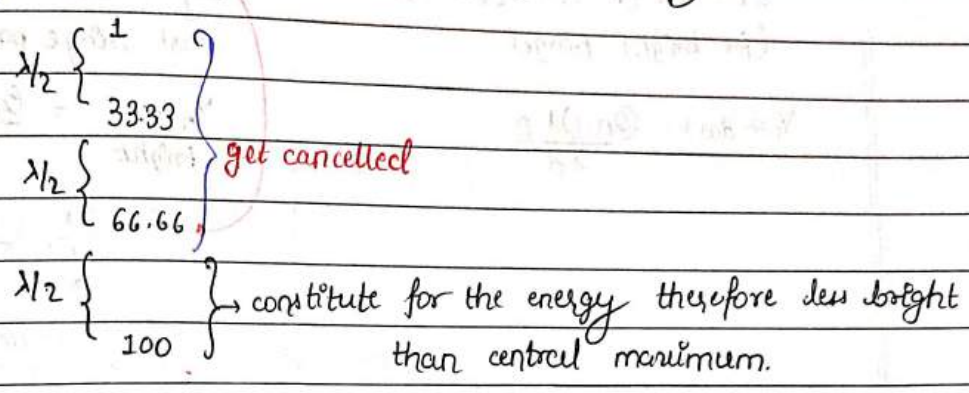 λ/2 { 1
33.33
get cancelled
λ/2 {
66.66
λ/2 { } → constitute for the energy therefore less bright
100 than central maximum.